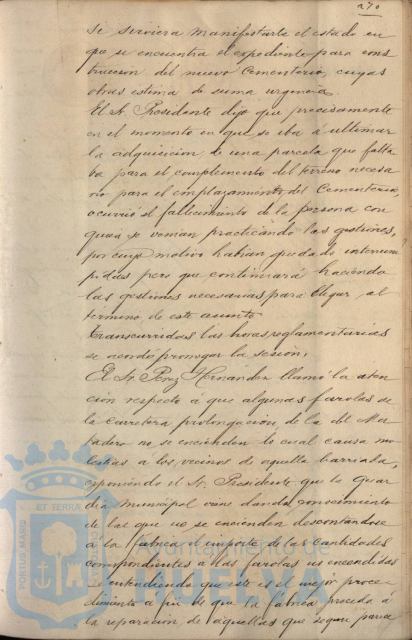 270
se sirviera manifestarle el estado en
que se encuentra el expediente para cons
truccion del nuevo Cementerio, cuyas
obras estima de suma urgencia.
El Sr. Presidente dijo que precisamente
en el momento en que se iba á ultimar
la adquisicion de una parcela que falta
ba para el complemento del terreno necesa
rio para el emplazamiento del Cementerio,
ocurrió el fallecimiento de la persona con
quien se venian practicando las gestiones,
por cuyo motivo habian quedado interrum
pidas pero que continuará haciendo
las gestiones necesarias para llegar al
termino de este asunto.
Transcurridas las horas reglamentarias
se acordó prorrogar la sesion.
El Sr. Perez Hernández llamó la aten
ción respecto á que algunas farolas de
la Carretera prolongacion de la del Ma
tadero no se encienden lo cual causa mo
lestias á los vecinos de aquella barriada,
exponiendo el Sr. Presidente que la Guar
dia Municipal viene dando conocimiento
de las que no se encienden descontándose
á la fabrica el importe de las cantidades
correspondientes á las farolas no encendidas
entendiendo que este es el mejor proce
dimiento á fin de que la fábrica proceda á
la reparacion de aquellas que segun parece
PORTUS MARIS
ET TERRÆ
Ayuntamiento de
HUELVA